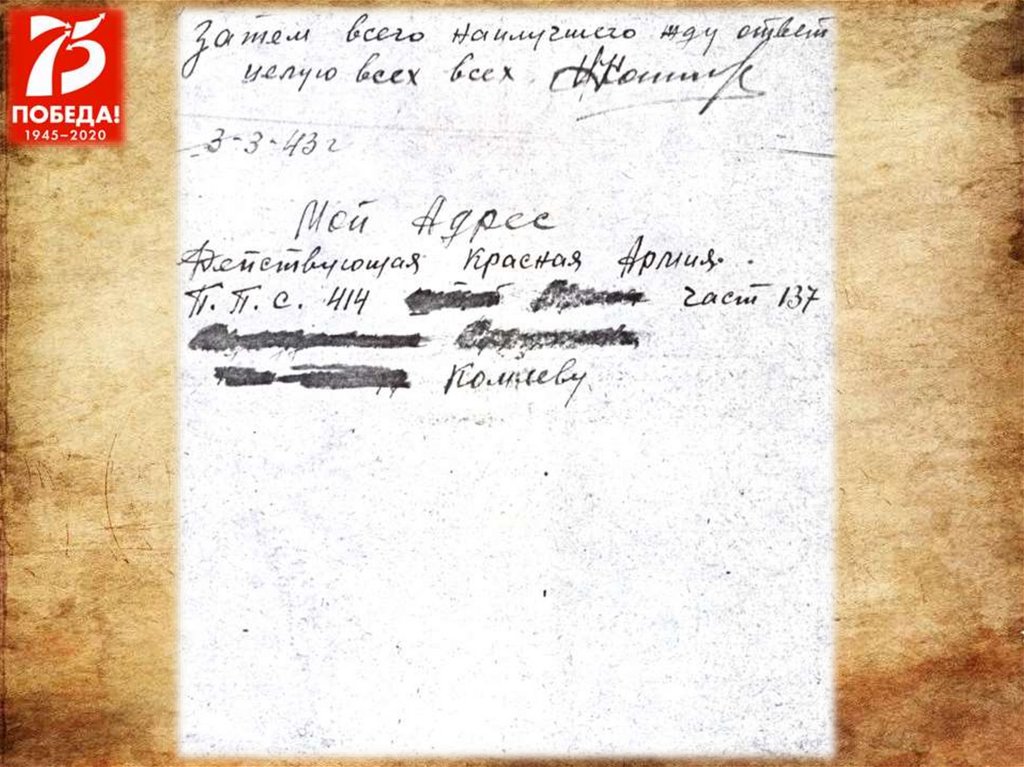 75
ПОБЕДА!
1945–2020
Затем всего наилучшего жду ответ
целую всех всех
3-3-43 г
Мой Адрес
Действующая Красная Армия.
П. П. С. 414 част 137